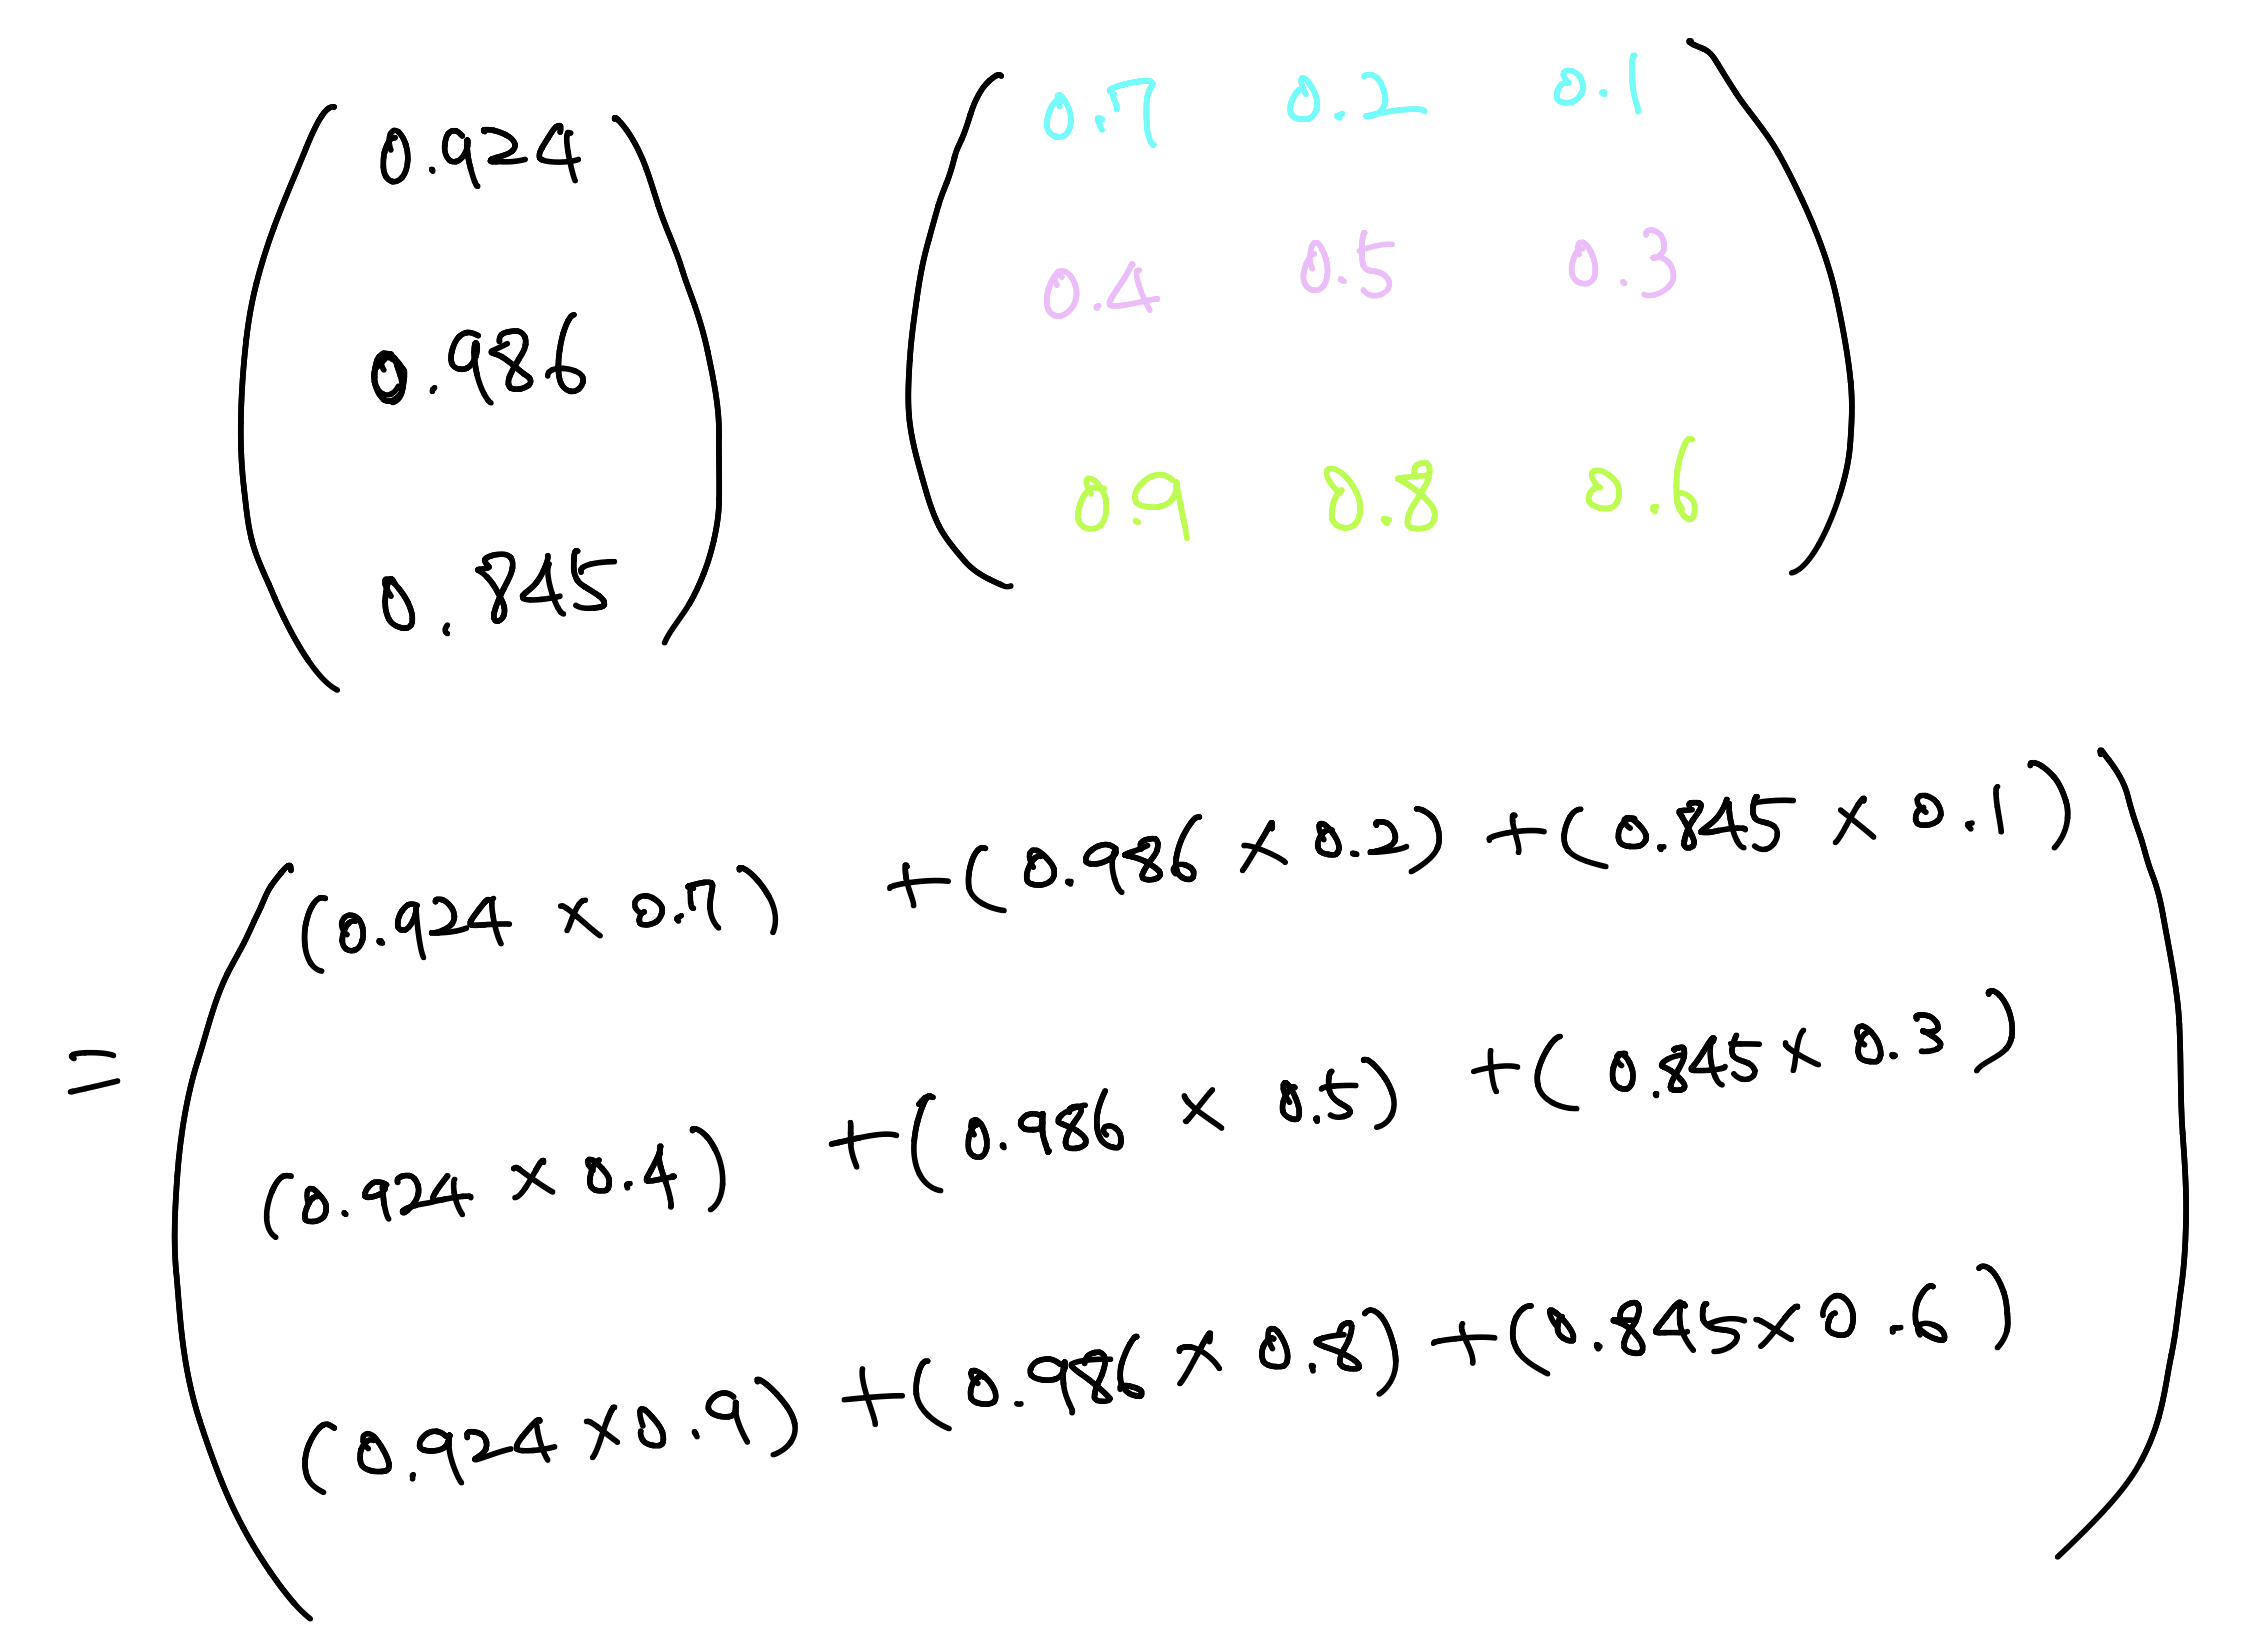 0.924
0.986
0.845
0.7 0.2 0.1
0.4 0.5 0.3
0.9 0.8 0.6
(0.924 × 0.7) + (0.986 × 0.2) + (0.845 × 0.1)
=
(0.924 × 0.4) + (0.986 × 0.5) + (0.845 × 0.3)
(0.924 × 0.9) + (0.986 × 0.8) + (0.845 × 0.6)